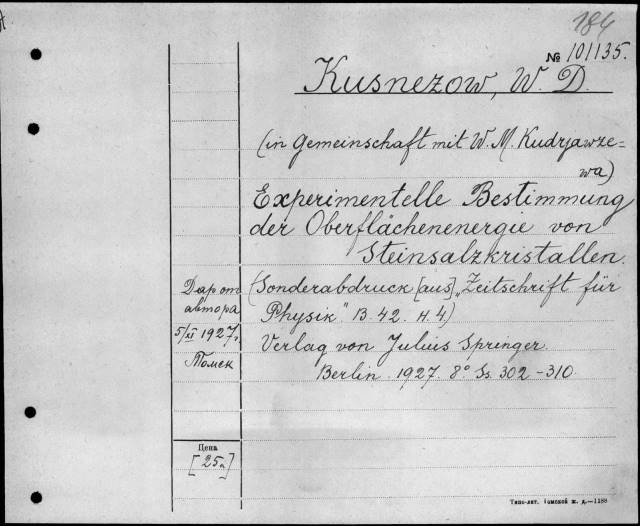 184
№ 101135.
Kusnezow, W. D.
(in Gemeinschaft mit W. M. Kudrjawze-
wa)
Experimentelle Bestimmung
der Oberflächenenergie von
Steinsalzkristallen.
(Sonderabdruck [aus] „Zeitschrift für
Physik" B. 42. H. 4)
Verlag von Julius Springer.
Berlin. 1927. 8° Ss. 302-310.
Дар от
автора
5/XI 1927 г.
Томск
Цена
[25к]
Типо-лит. Томской ж. д.—1188